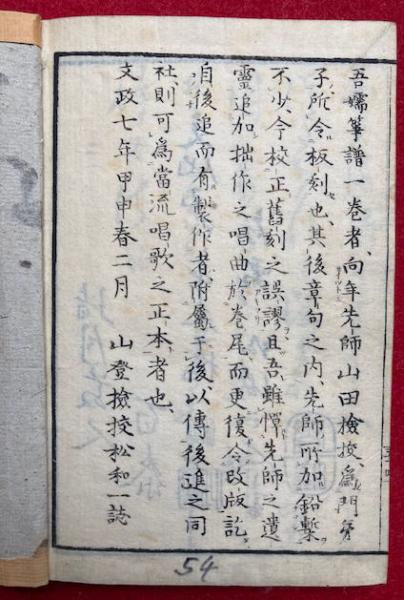 吾嬬箏譜一卷者、向年先師山田撿挍爲門弟
子所令板刻也、其後章句之内、先師所加鉛槧
不少、今校正舊刻之誤謬、且吾雖憚先師之遺
靈追加拙作之唱曲於卷尾、而更復令改版訖、
自後追而有製作者、附屬于後、以傳後進之同
社、則可爲當流唱歌之正本者也、
文政七年甲申春二月　山登撿挍松和一誌
54